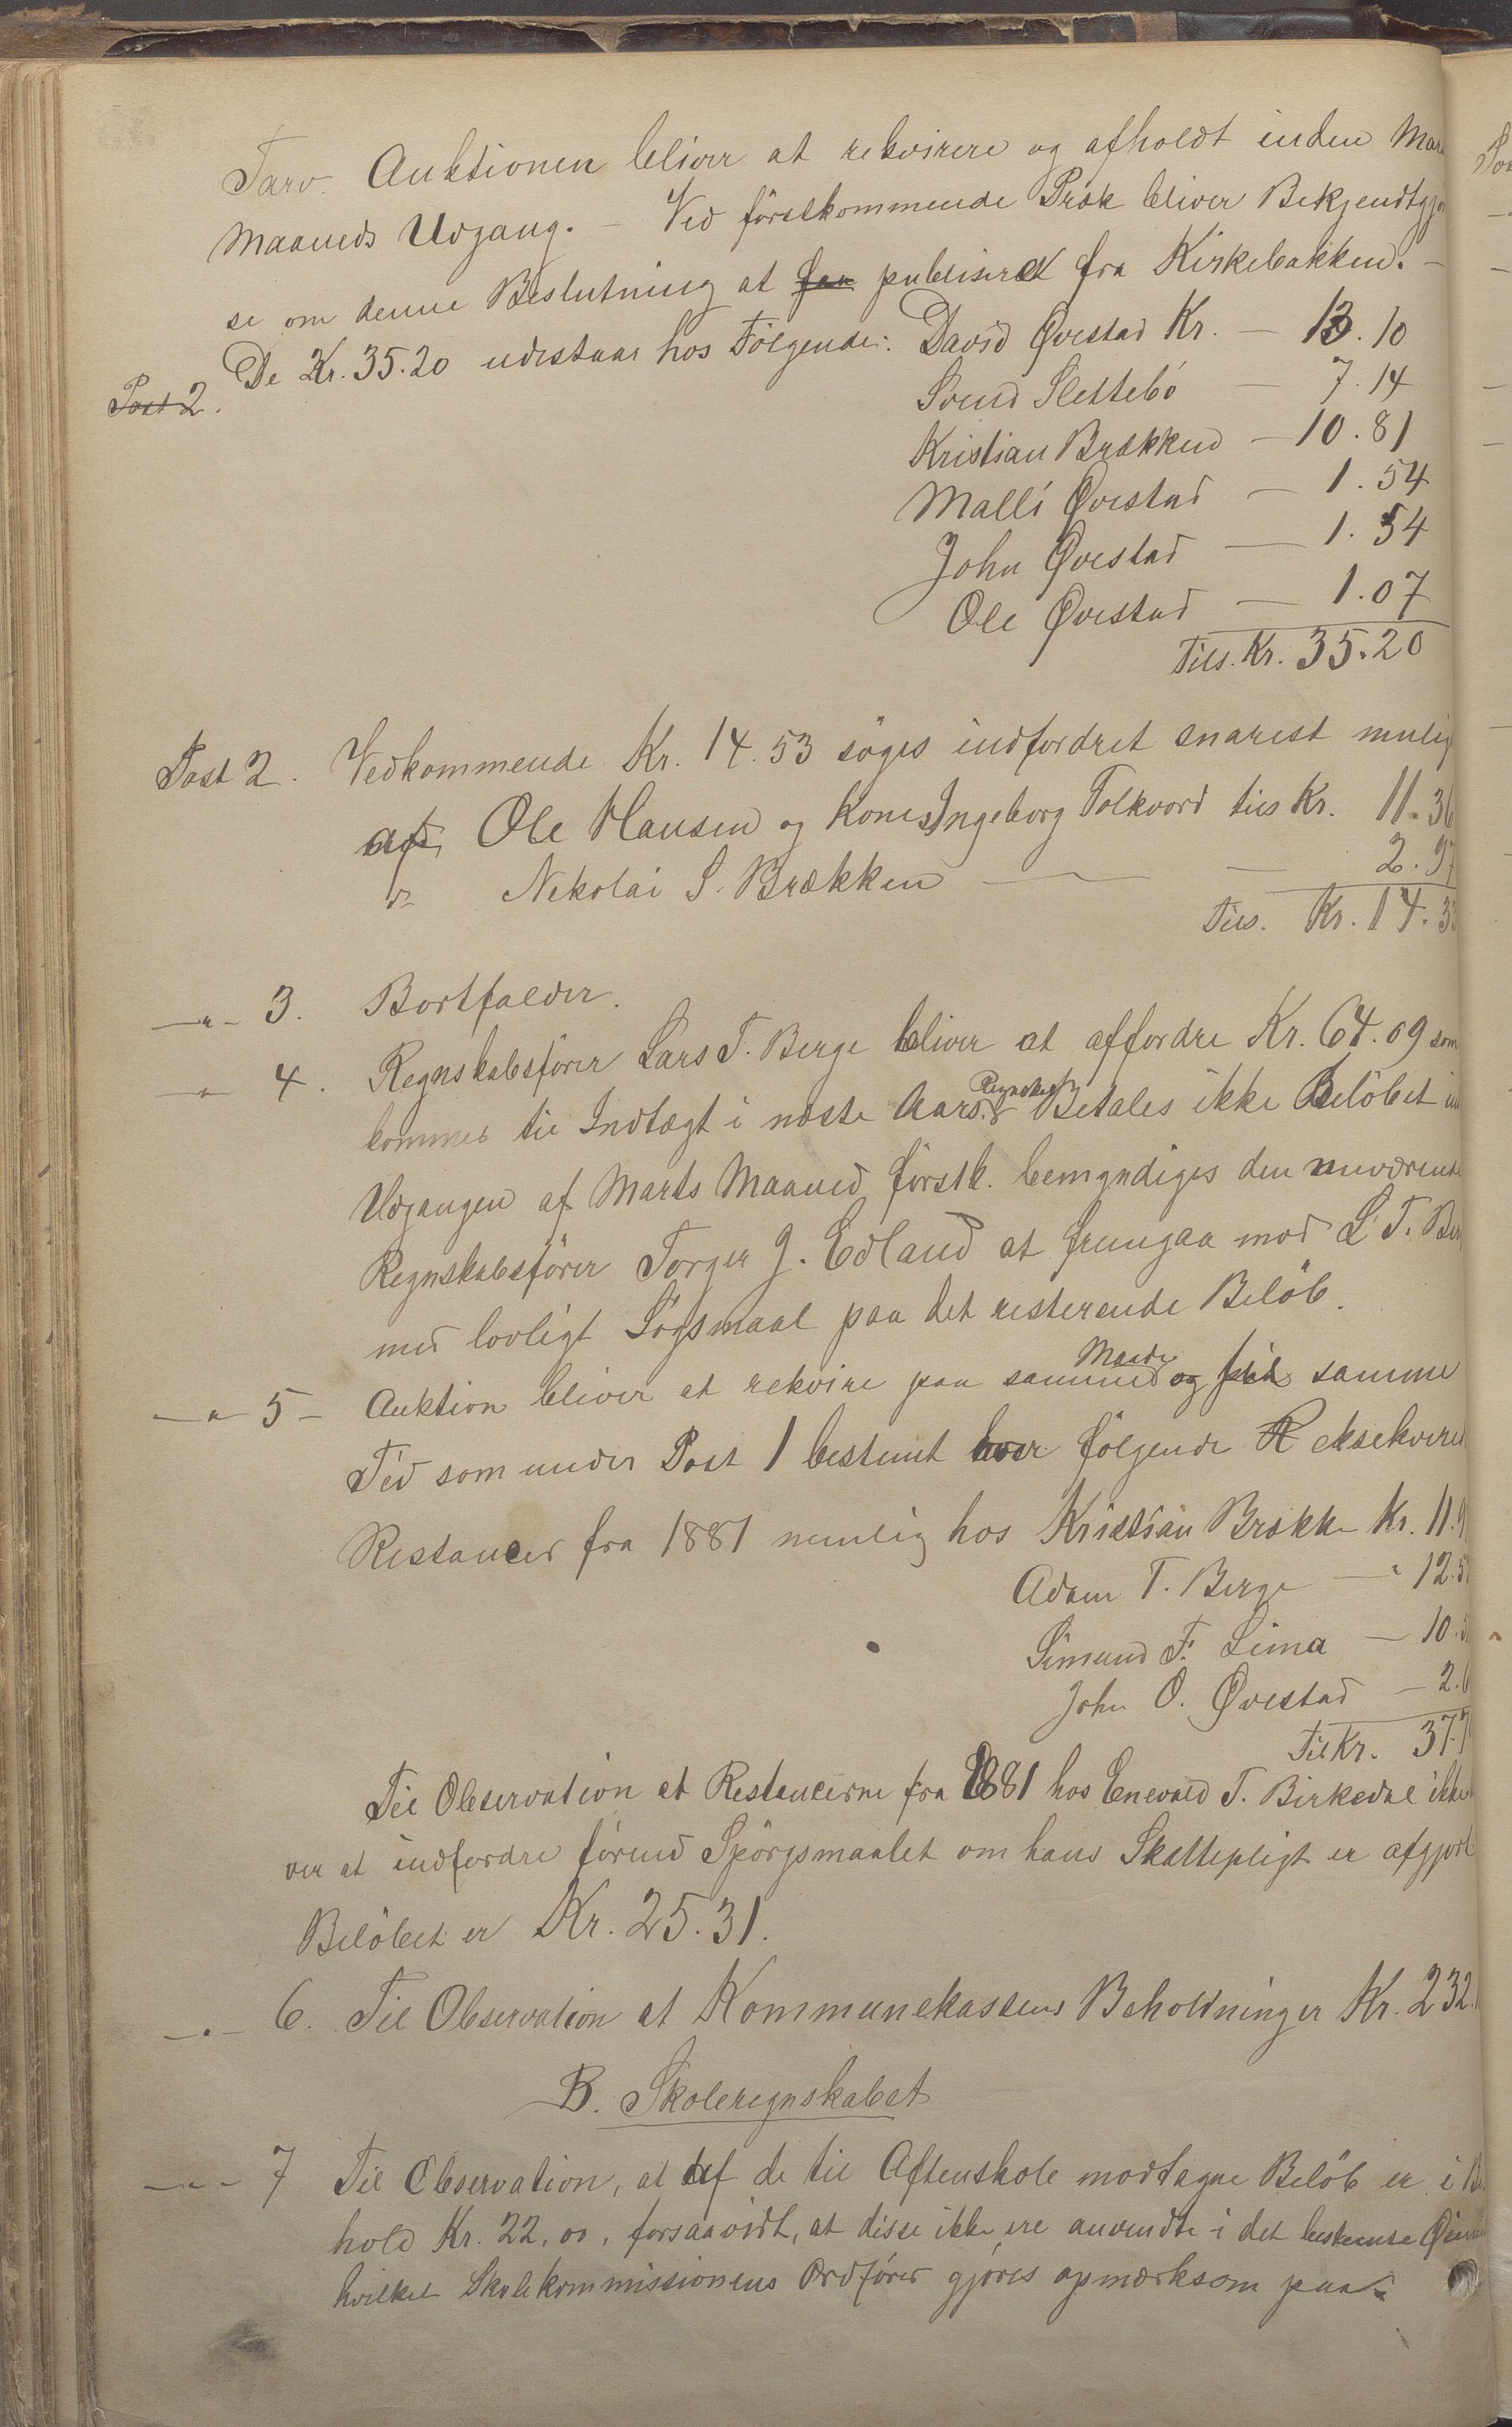 Tarv. Auktionen bliver at rekvirere og afholdt inden Mar
Maaneds Udgang. – Ved förstkommende Præk bliver Bekjendtgjö
se om denne Beslutning at faa publiseret fra Kirkebakken. –
De Kr. 35.20 udestaar hos Følgende: David Qvestad Kr. – 13.10
Post 2.
Svend Slettebö – 7.14
Kristian Brækken – 10.81
Malli Qvestad – 1.54
John Qvestad – 1.54
Ole Qvestad – 1.07
Tils. Kr. 35.20
Post 2. Vedkommende Kr. 14.53 söges indfordret snarest mulig
af Ole Hansen og Kones Ingeborg Folkvord tils Kr. 11.36
" Nikolai S. Brækken – – 2.97
Tils. Kr. 14.33
–"– 3. Bortfalder.
–"– 4. Regnskabsfører Lars T. Berge bliver at affordre Kr. 64.09 som
kommer til Indtægt i næste Aars Regnskab. Betales ikke Belöbet in
Udgangen af Marts Maaned förstk. bemyndiges den nuværende
Regnskabsfører Torger J. Edland at fremgaa mod L. T. Ber
med lovligt Sögsmaal paa det resterende Belöb.
–"– 5 – Auktion bliver at rekvire paa samme Maade og til samme
Tid som under Post 1 bestemt hver følgende R eksekvered
Restancer fra 1881 nemlig hos Kristian Brække Kr. 11.9
Adam T. Berge – " 12.5
Simund F. Lima – 10.5
John O. Qvestad – 2.6
Til Kr. 37.7
Til Observation at Restancerne fra 1881 hos Enevald T. Birkedal ikke
ver at indfordre förend Spörgsmaalet om hans Skattepligt er afgjort
Belöbet er Kr. 25.31.
–"– 6. Til Observation at Kommunekassens Beholdninger Kr. 232.
B. Skoleregnskabet
–"– 7 Til Observation, at af de til Aftenskole modtagne Belöb er i B
hold Kr. 22,00, forsaavidt, at disse ikke ere anvendte i det bestemte Öiem
hvilket Skolekommissionens Ordfører gjöres opmærksom paa.